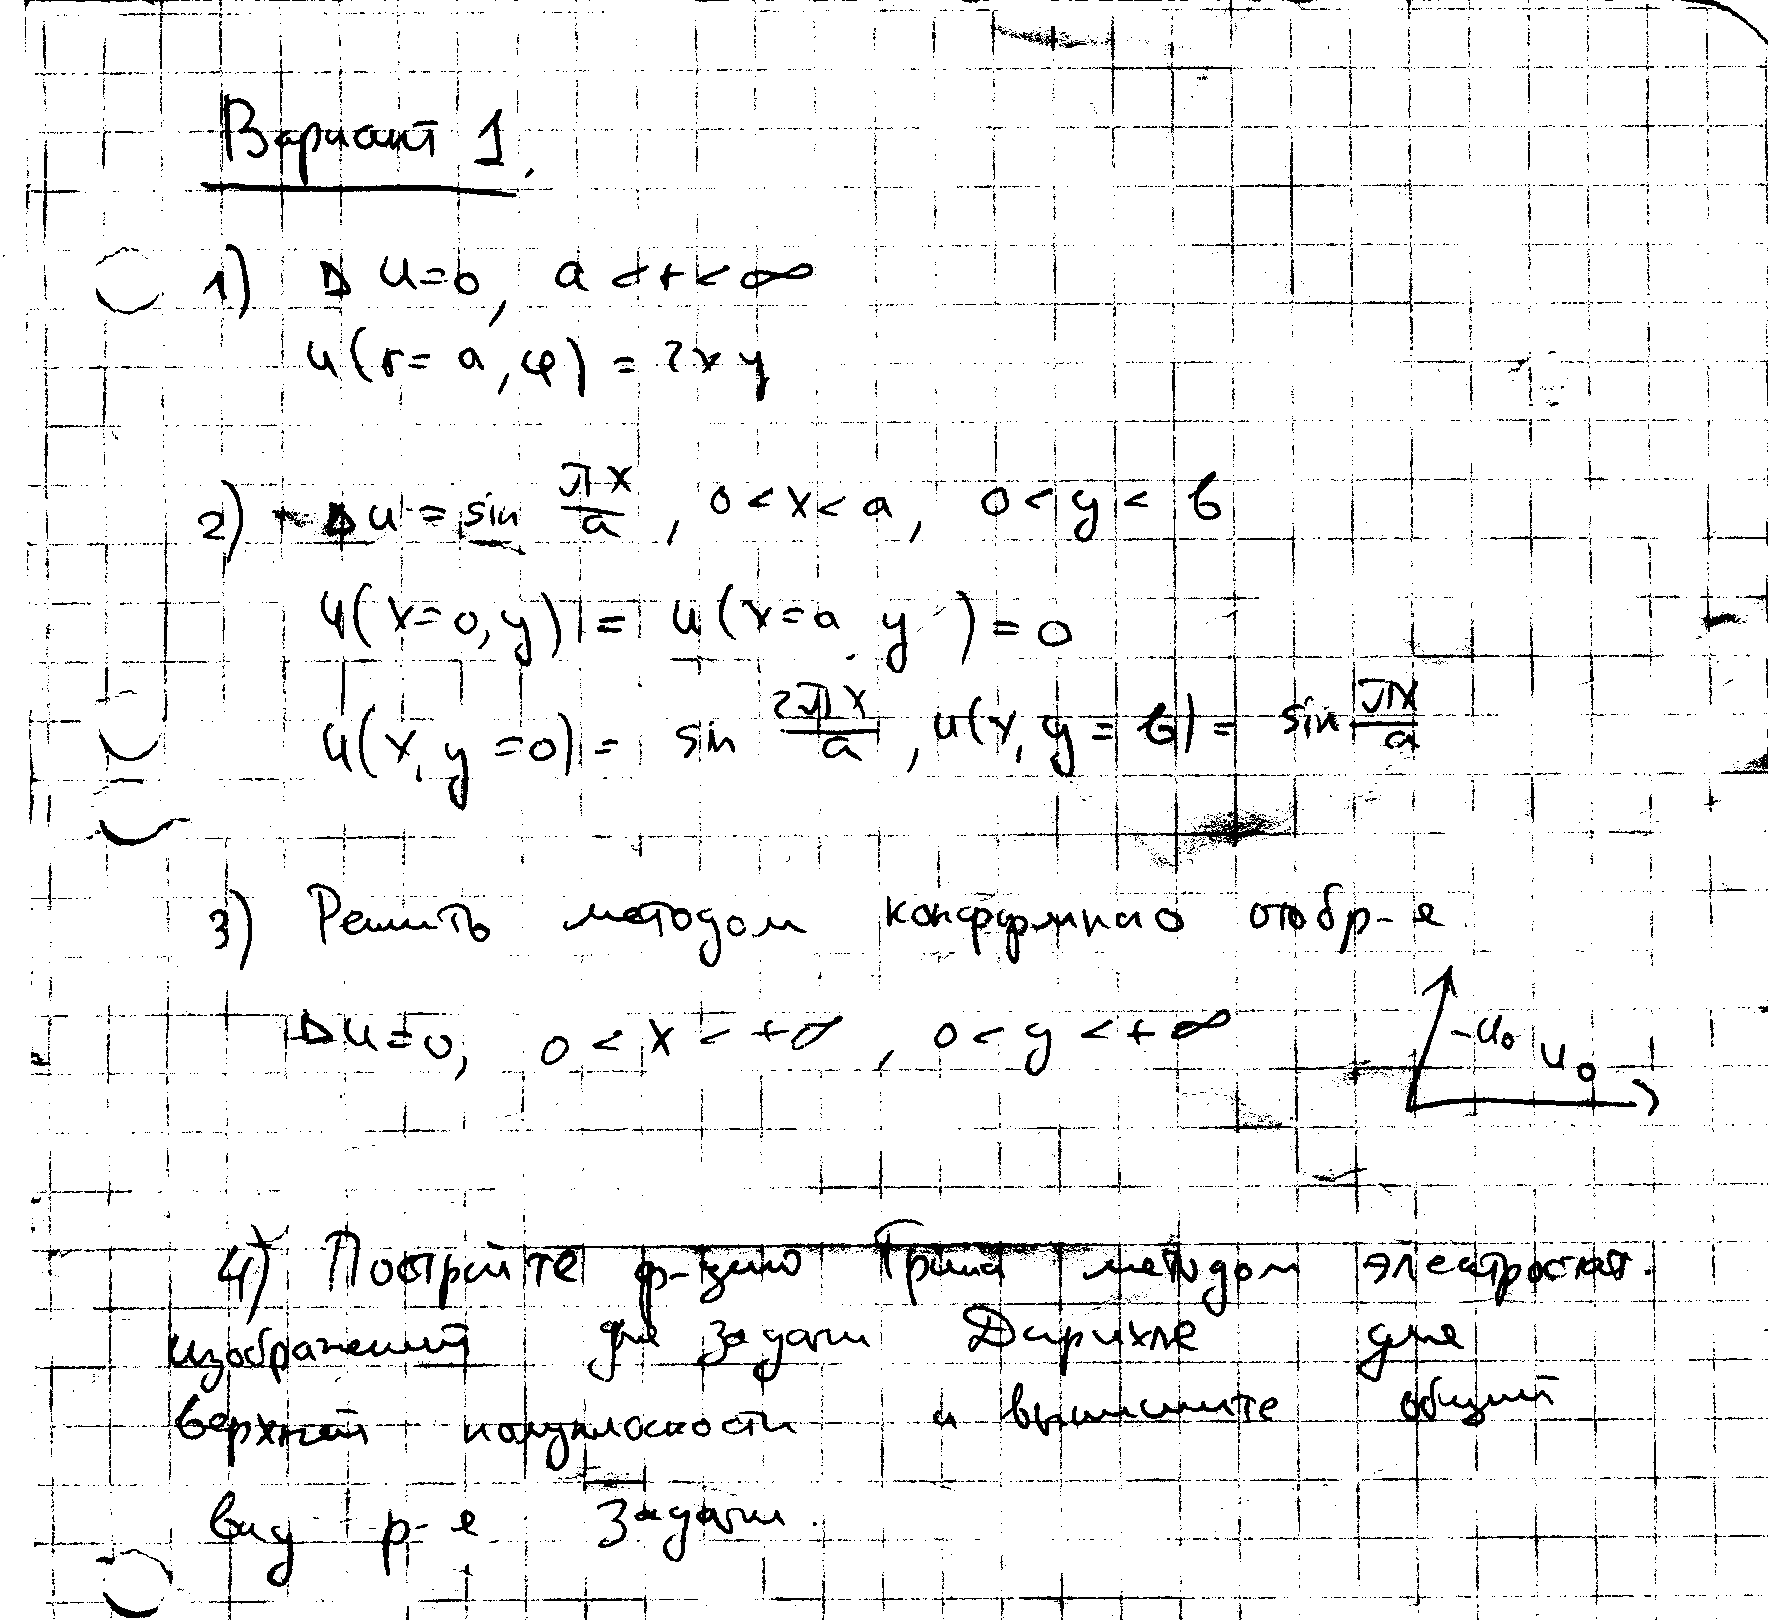 Вариант 1.
1) Δu=0, a<r<∞
u(r=a,φ) = 2xy
2) Δu = sin πx/a, 0<x<a, 0<y<b
u(x=0,y) = u(x=a y) = 0
u(x,y=0) = sin 2πx/a, u(x,y=b) = sin πx/a
3) Решить методом конформного отобр-е
Δu=0, 0<x<+∞, 0<y<+∞
-u₀ u₀
4) Постройте ф-цию Грина методом электростат.
изображений для задачи Дирихле для
верхней полуплоскости и выпишите общий
вид р-е задачи.